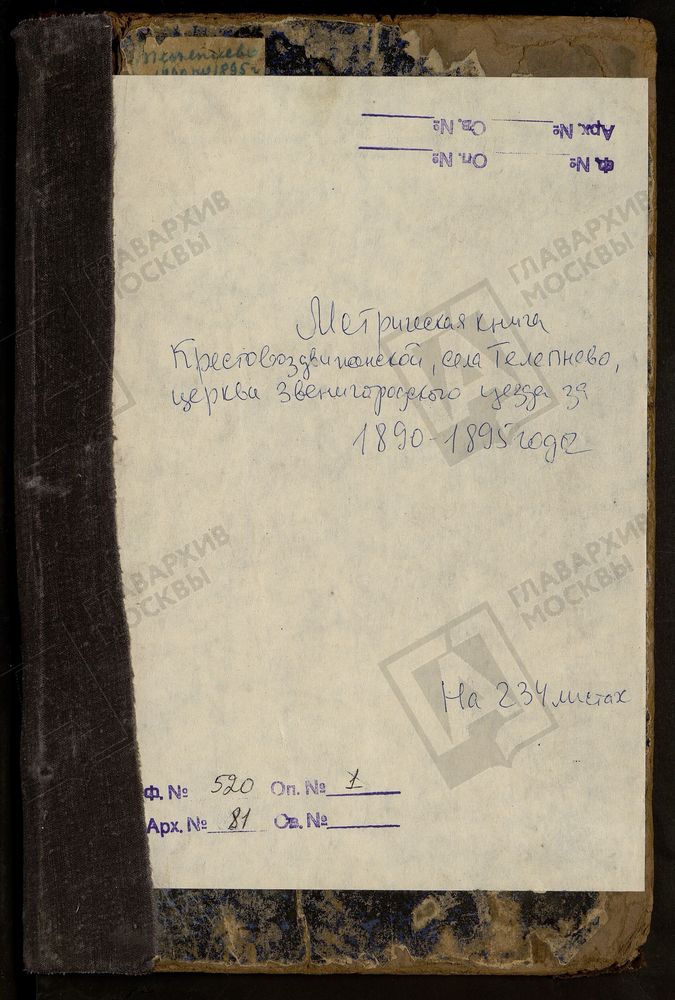 1890 по 1895 г
Арх. № Св. №
Ф. № Оп. №
ГЛАВАРХИВ
МОСКВЫ
ГЛАВАРХИВ
МОСКВЫ
Метрическая книга
Крестовоздвиженской, села Телепнево,
церква Звенигородского уезда за
1890-1895 годы
ГЛАВАРХИВ
МОСКВЫ
ГЛАВАРХИВ
МОСКВЫ
На 234 листах
Ф. № 520 Оп. № 1
Арх. № 81 Св. №